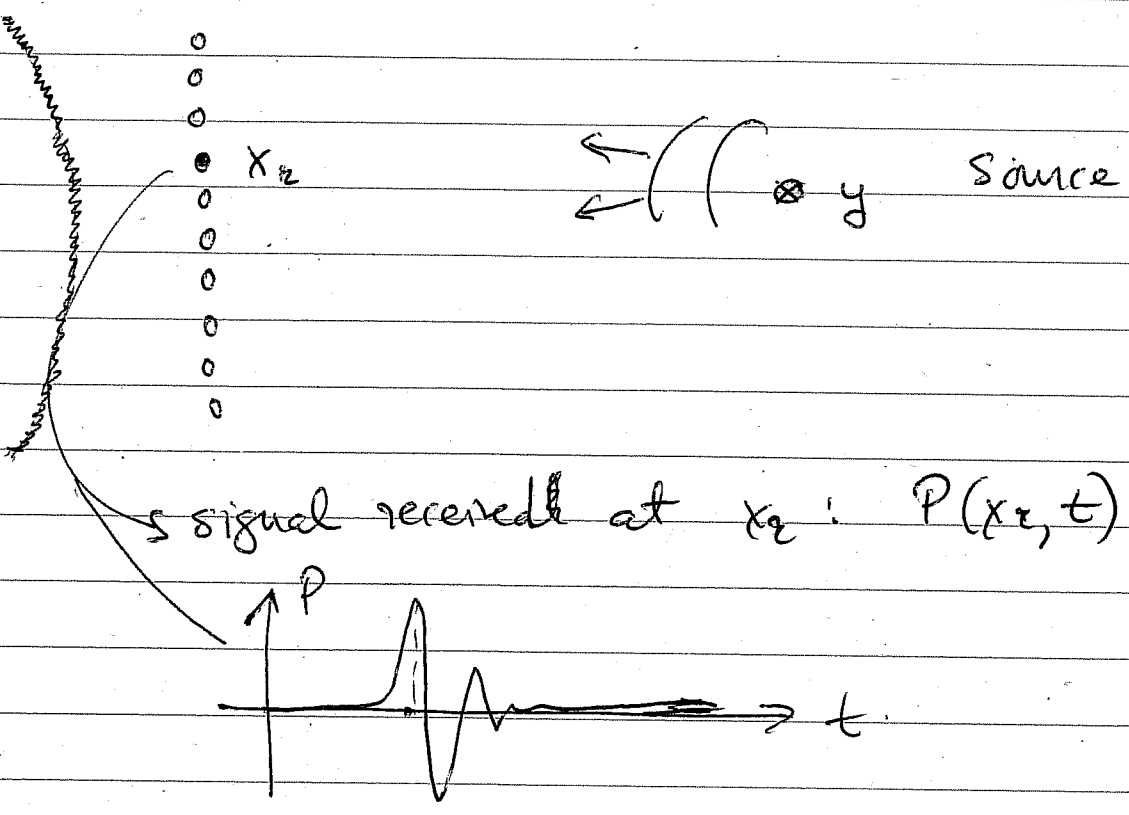 x_r
y Source
signal received at x_r : P(x_r, t)
P
t